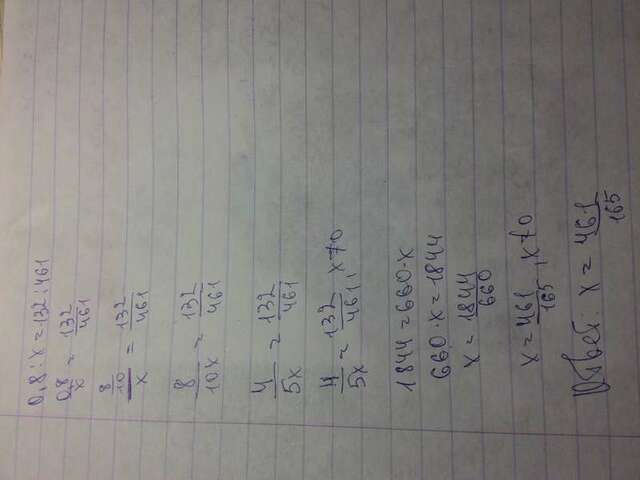 0,8 : x = 132 : 461
0,8/x = 132/461
8/10/x = 132/461
8/10x = 132/461
4/5x = 132/461
4/5x = 132/461, x≠0
1844 = 660·x
660·x = 1844
x = 1844/660
x = 461/165, x≠0
Ответ: x = 461/165